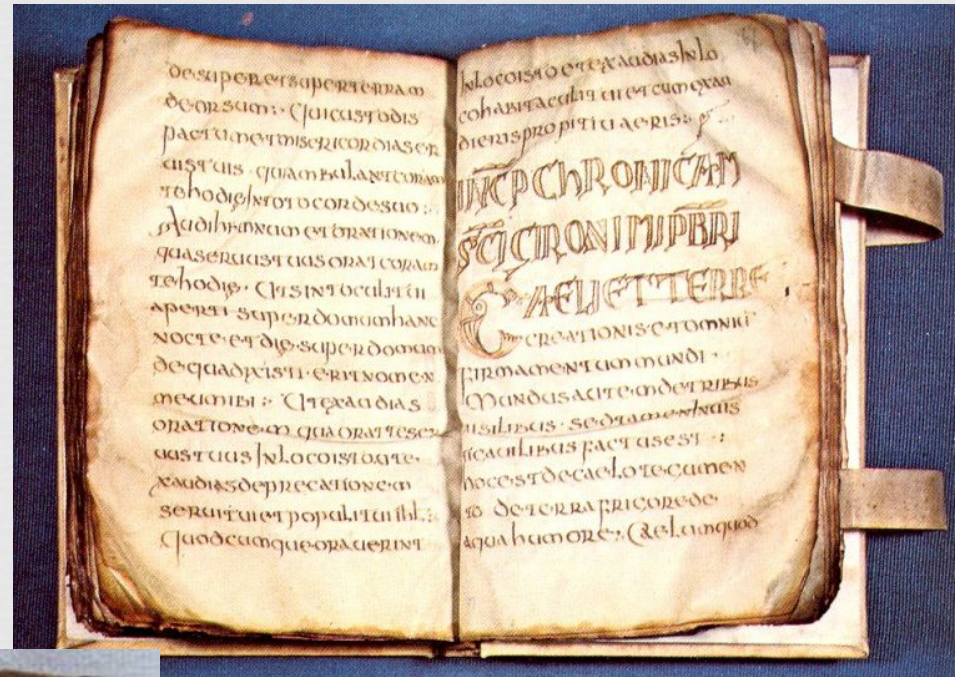 desuper et super terram
deorsum : qui custodis
pactum et misericordias er
uis tuis · qui ambulant coram
te hodie in toto corde suo :
Audi hymnum et orationem
quaseruus tuus orat coram
te hodie · Ut sint oculi tui
aperti super domum hanc
nocte et die · super domum
de qua dixisti · erit nomen
meum ibi : Ut exaudias
orationem qua orat te ser
uus tuus In loco isto ut e
xaudias deprecationem
serui tui et populi tui ihl :
Quodcumque orauerint
In loco isto et exaudias In lo
co habitaculi tui et cum exau
dieris propitiu aeris :
INCP CHRONICAM
SCI GIRONIMI PBRI
CAELI ET TERRE
creationis et omniu
firmamentum mundi ·
Mundus autem de tribus
uisilibus · sed tamen Inuis
ticauilibus factus est :
hoc est de caelo te cumen
to de terra frigore de
aqua humore : Caelum quod